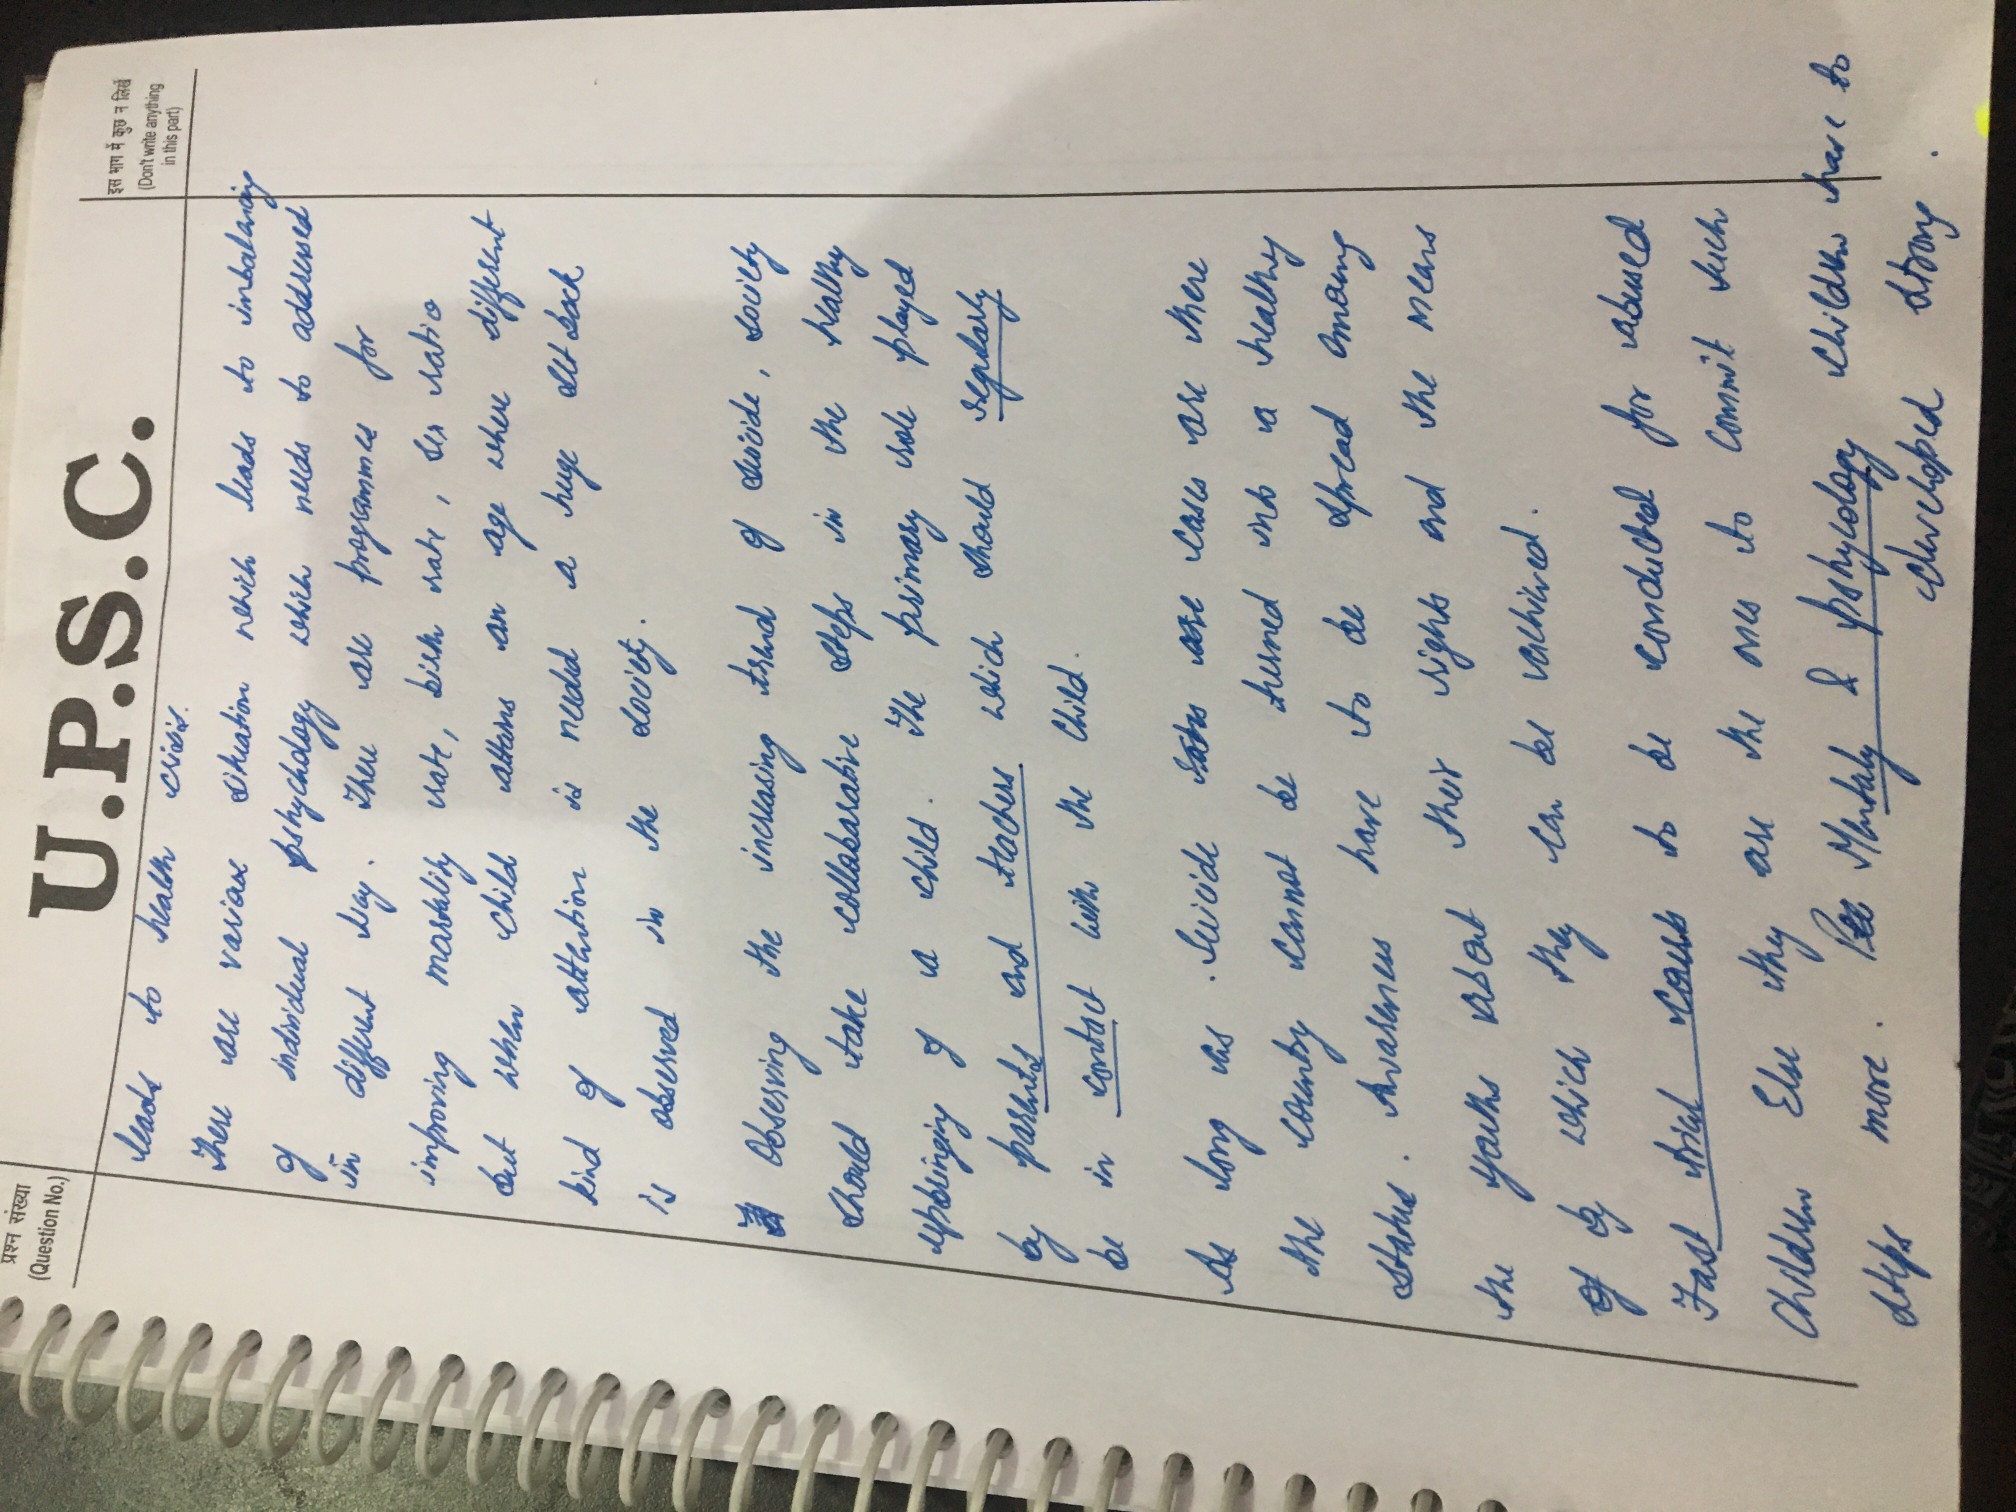 U.P.S.C.
प्रश्न संख्या
(Question No.)
इस भाग में कुछ न लिखें
(Don't write anything
in this part)
leads to health crisis.
There are various situation which leads to inbalancing
of individual pshychology which needs to addressed
in different way. There are programmes for
improving mortality rate, birth rate, sex ratio
but when child attains an age where different
kind of attention is needed a huge set back
is observed in the society.
Observing the increasing trend of suicide, society
should take collabarative steps in the healthy
upbringing of a child. The primary role played
by parents and teachers which should regularly
be in contact with the child.
As long as suicide rates are cases are there
the country cannot be turned into a healthy
status. Awareness have to be spread among
the youths about their rights and the means
of by which they can be achived.
Fast trial courts to be conducted for abused
Children Else they are the ones to commit such
steps more. Mentaly & pshycology children have to
develloped strong.